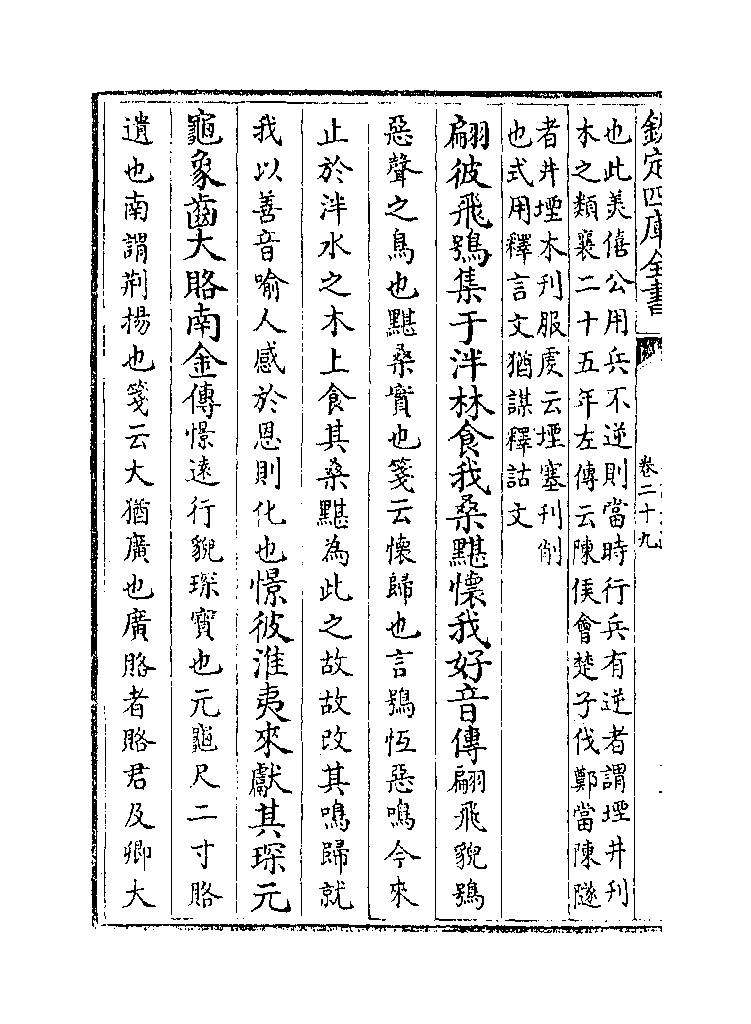 欽定四庫全書
卷二十九
也此美僖公用兵不逆則當時行兵有逆者謂堙井刋
木之類襄二十五年左傳云陳侯會楚子伐鄭當陳隧
者井堙木刋服虔云堙塞刋削
也式用釋言文猶謀釋詁文
翩彼飛鴞集于泮林食我桑黮懷我好音傳翩飛貌鴞
惡聲之鳥也黮桑實也箋云懷歸也言鴞恆惡鳴今來
止於泮水之木上食其桑黮為此之故故改其鳴歸就
我以善音喻人感於恩則化也憬彼淮夷來獻其琛元
龜象齒大賂南金傳憬逺行貌琛寶也元龜尺二寸賂
遺也南謂荆揚也箋云大猶廣也廣賂者賂君及卿大